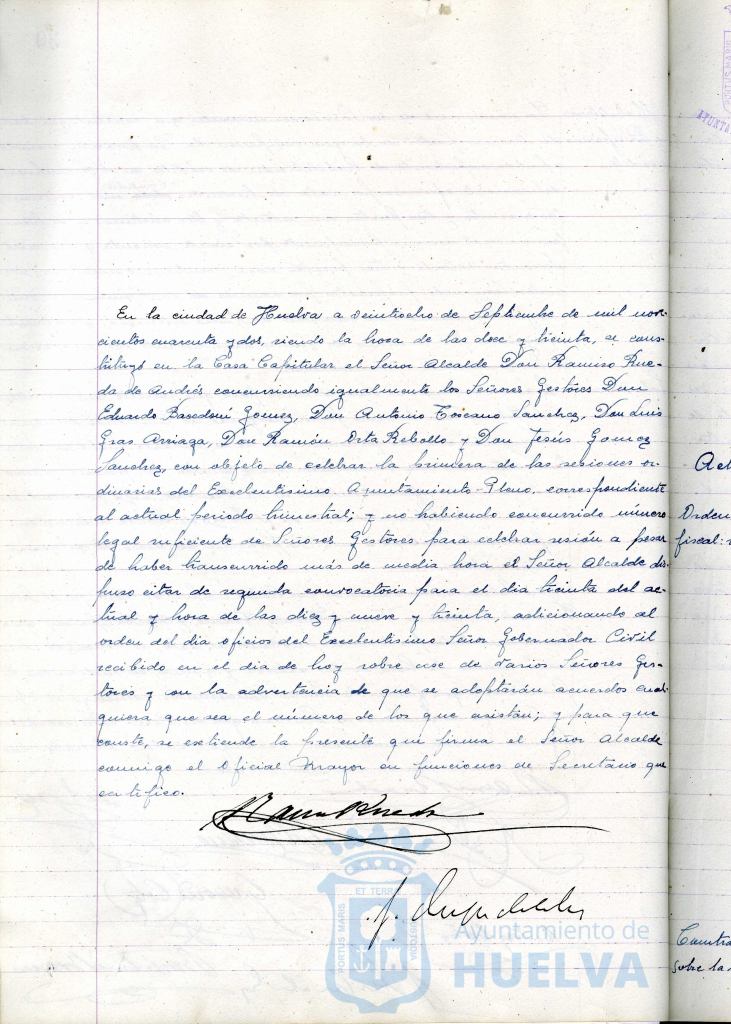 En la ciudad de Huelva a veintiocho de Septiembre de mil nove-
cientos cuarenta y dos, siendo la hora de las doce y treinta, se cons-
tituyó en la Casa Capitular el Señor Alcalde Don Ramiro Rue-
da de Andrés concurriendo igualmente los Señores Gestores Don
Eduardo Gomez, Don Antonio Toscano Sanchez, Don Luis
Gras Arriaga, Don Ramón Orta Rebollo y Don Jesús Gomez
Sanchez, con objeto de celebrar la primera de las sesiones or-
dinarias del Excelentísimo Ayuntamiento Pleno, correspondiente
al actual periodo trimestral; y no habiendo concurrido número
legal suficiente de Señores Gestores para celebrar sesión a pesar
de haber transcurrido más de media hora el Señor Alcalde dis-
puso citar de segunda convocatoria para el dia treinta del ac-
tual y hora de las diez y nueve y treinta, adicionando al
orden del dia oficios del Excelentísimo Señor Gobernador Civil
recibido en el dia de hoy sobre cese de varios Señores Ges-
tores y con la advertencia de que se adoptarán acuerdos cual-
quiera que sea el número de los que asistan; y para que
conste, se extiende la presente que firma el Señor Alcalde
conmigo el Oficial Mayor en funciones de Secretario que
certifico.
ET TERRÆ
PORTUS MARIS
CUSTODIA
Ayuntamiento de
HUELVA
Orden
fiscal:
sobre la
PORTUS MARIS